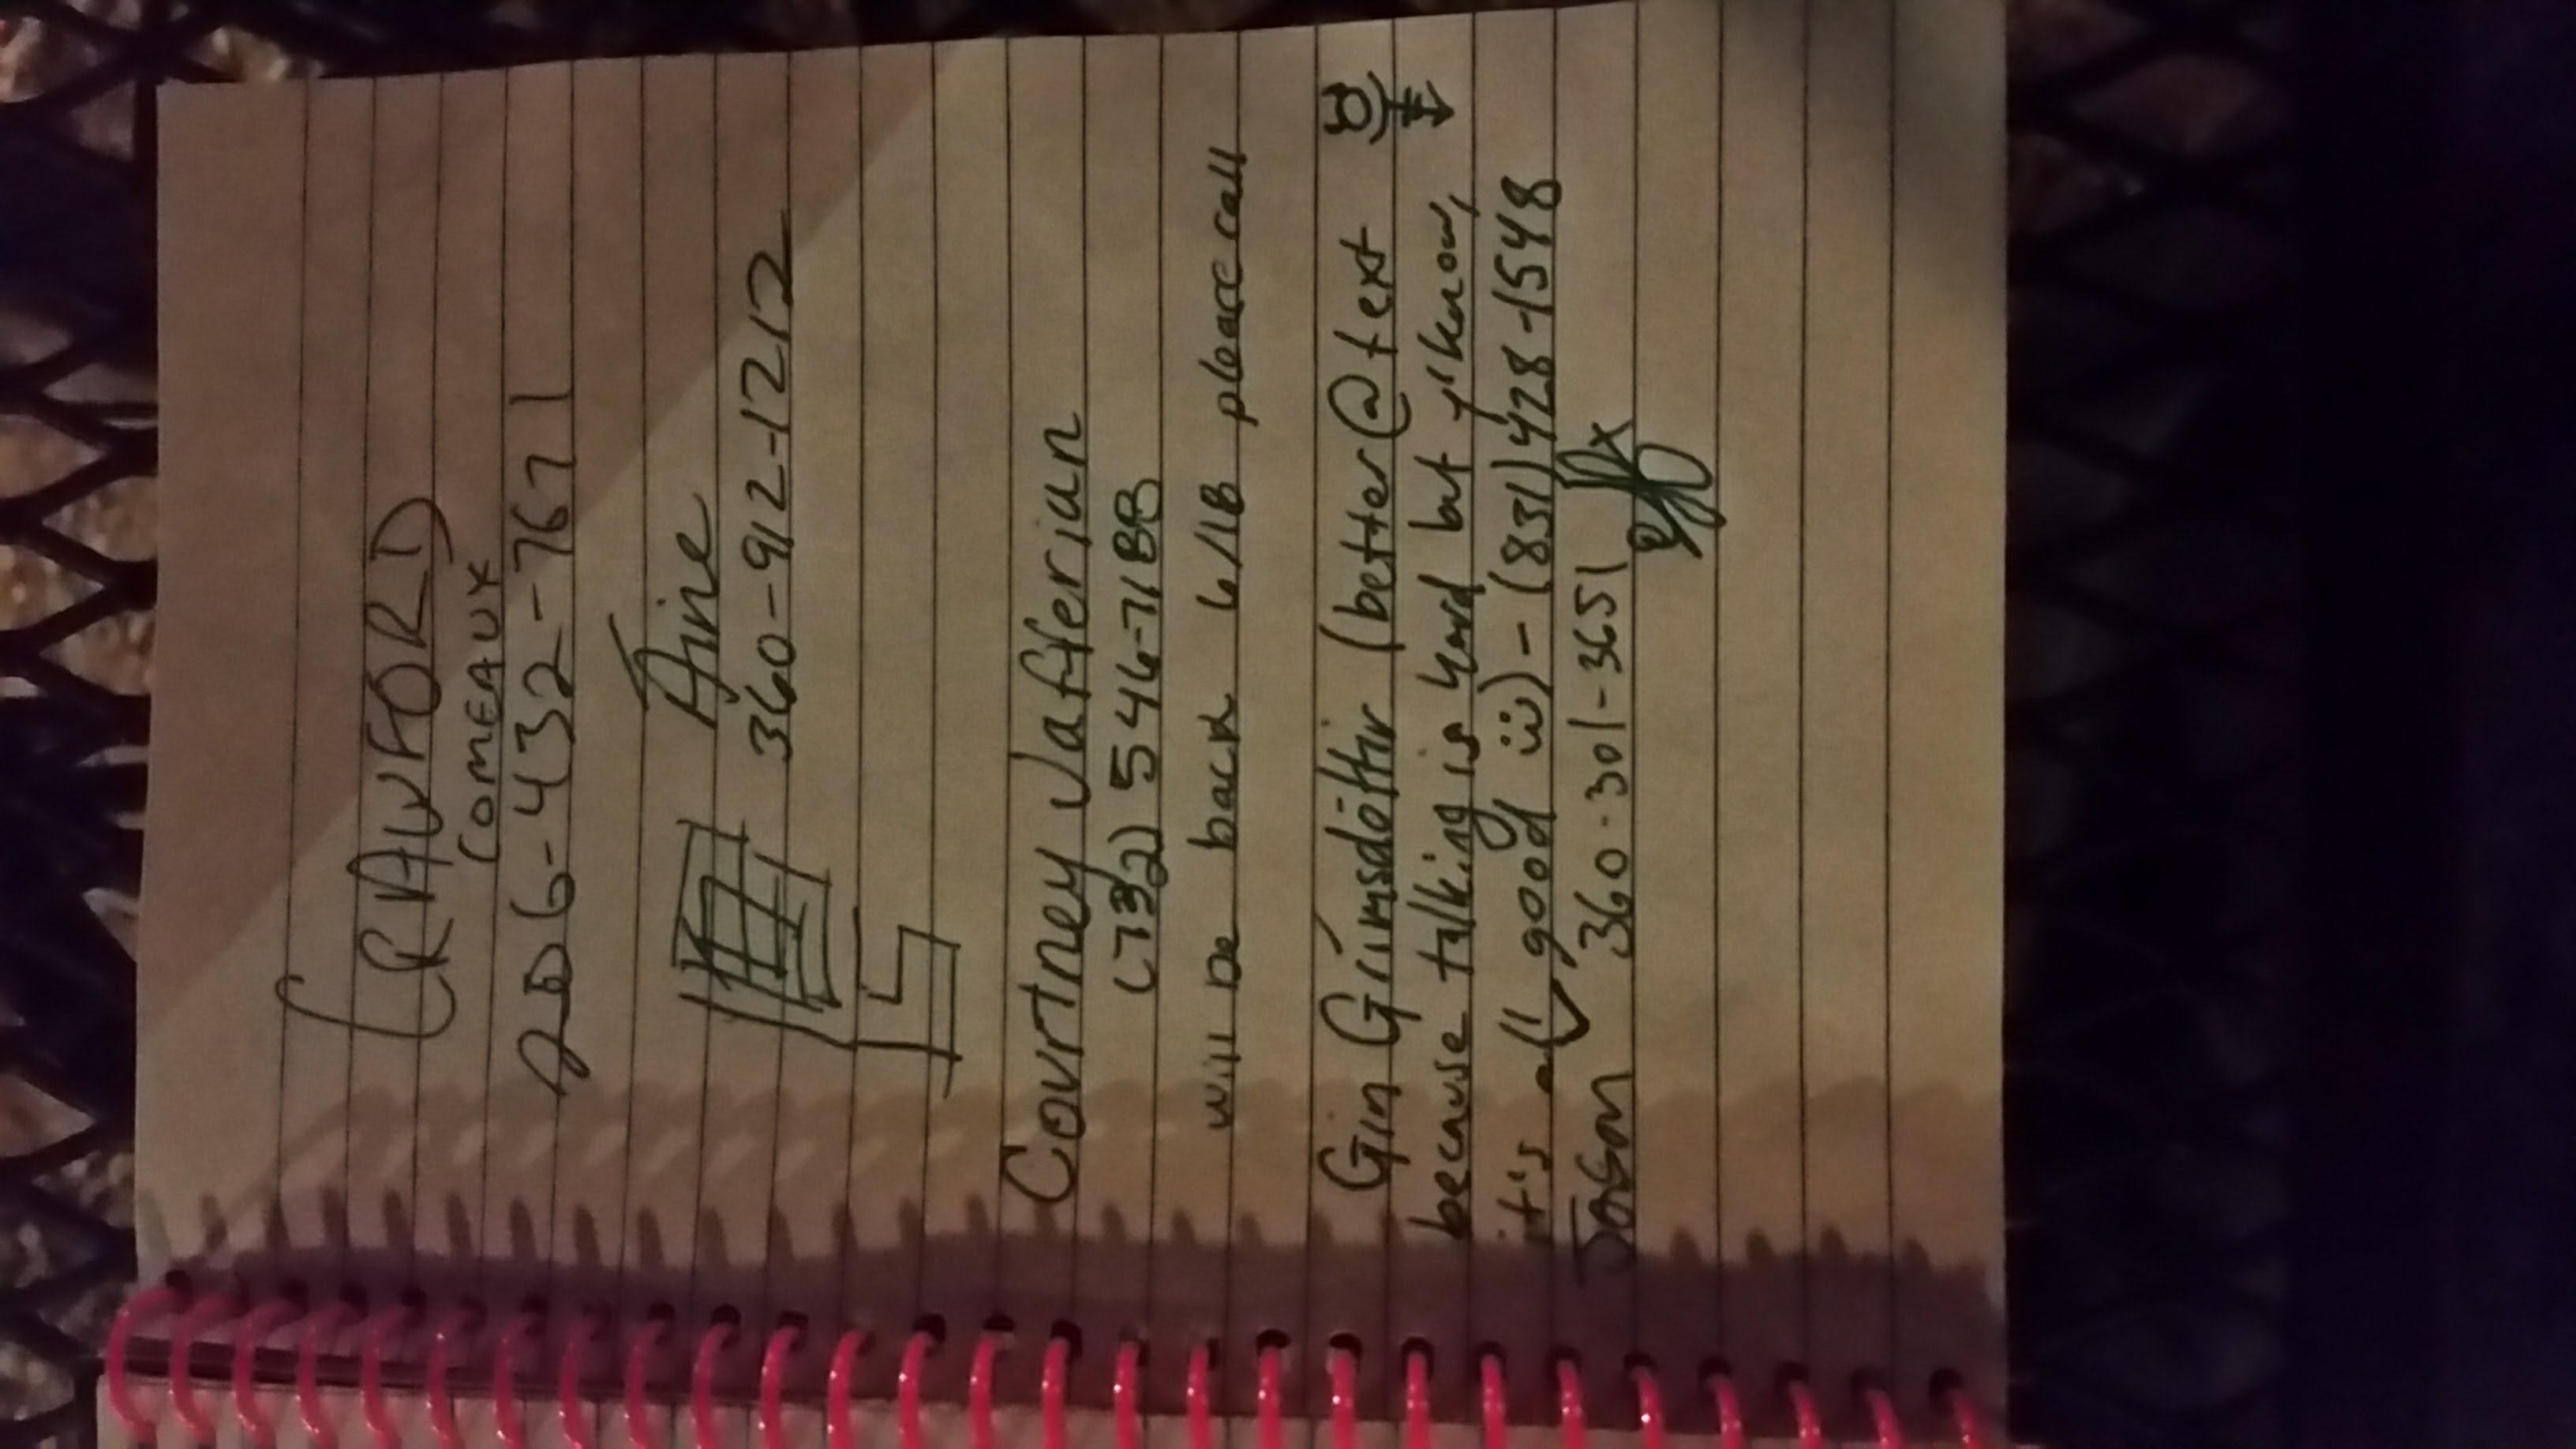 CRAWFORD
COMEAUX
206-432-7671
Áine
360-912-1212
Courtney Jafferian
(732) 546-7188
will be back 6/18 please call
Gin Grímsdóttir (better @ text
because talking is hard but y'know,
it's all good ü) - (831) 428-1548
Jason 360-301-3651